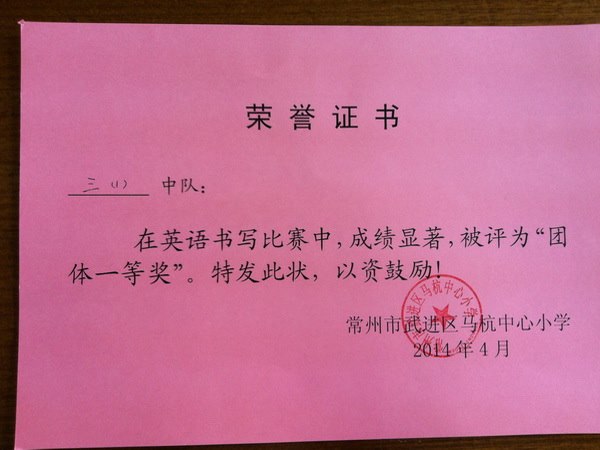 荣誉证书
三(1) 中队：
在英语书写比赛中，成绩显著，被评为“团
体一等奖”。特发此状，以资鼓励！
常州市武进区马杭中心小学
2014年4月
常州市武进区马杭中心小学